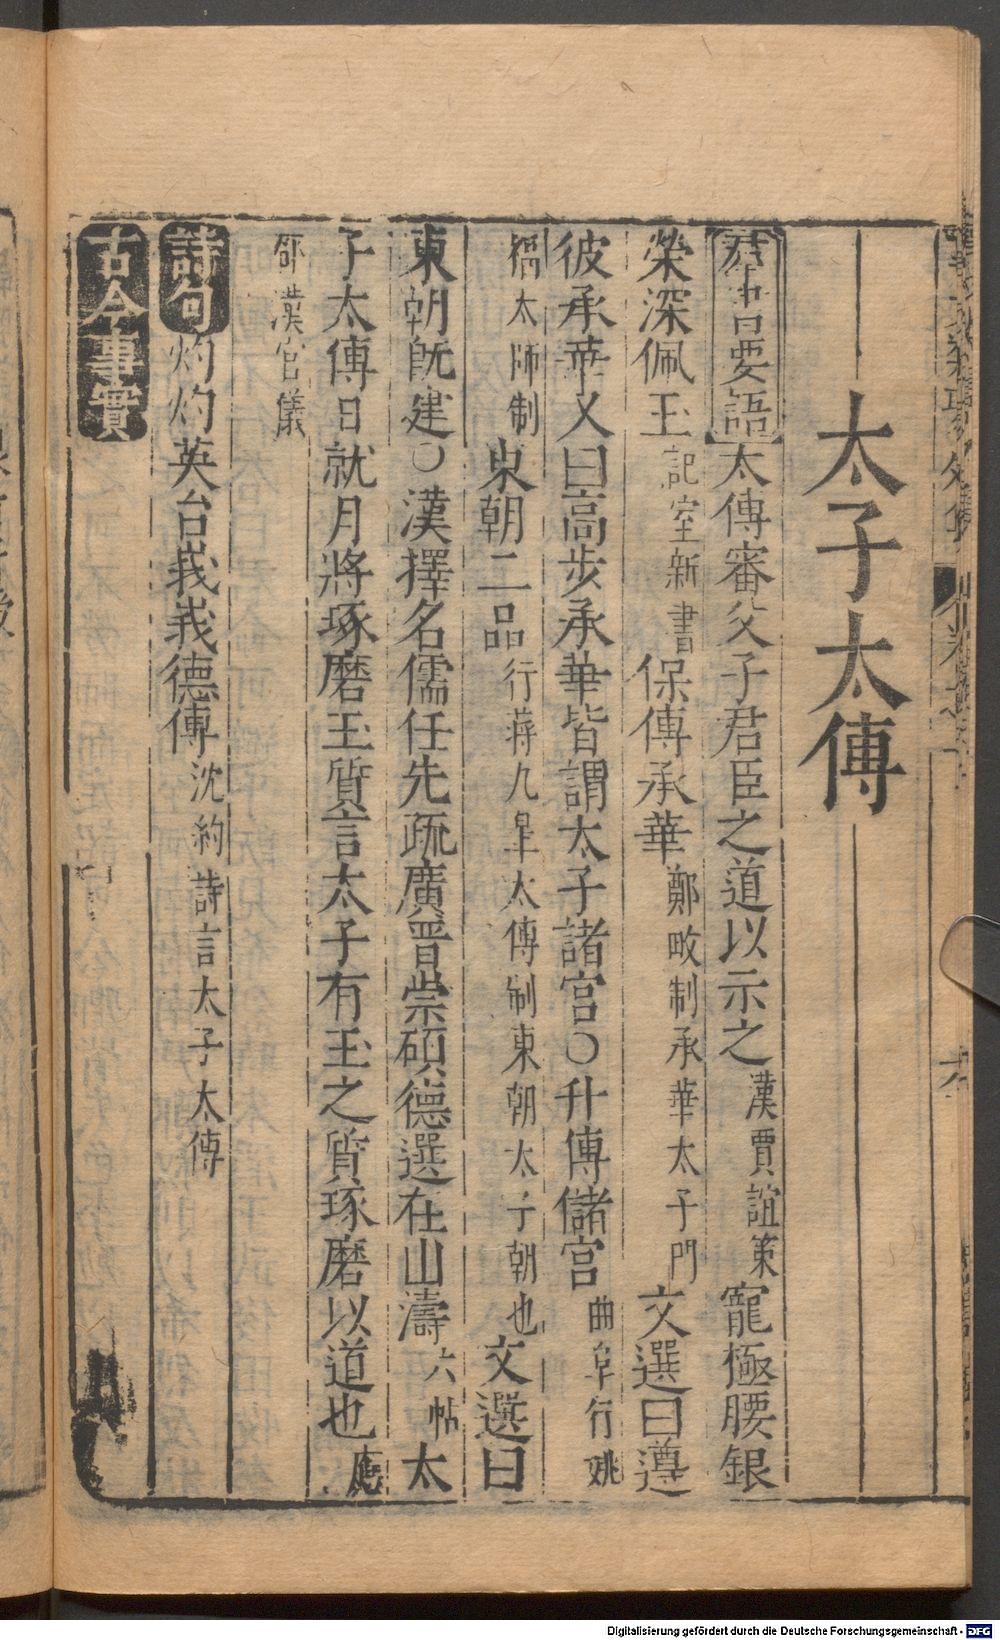 太子太傅
羣書要語太傅審父子君臣之道以示之漢賈誼策寵極腰銀
榮深佩玉記室新書保傅承華鄭畋制承華太子門文選曰遵
彼承華又曰高步承華皆謂太子諸宮○升傅儲宮曲阜行姚
禍太師制東朝二品行蔣九皐太傅制東朝太子朝也文選曰
東朝既建○漢擇名儒任先疏廣晋崇碩德選在山濤六帖太
子太傅日就月將琢磨玉質言太子有玉之質琢磨以道也應
邵漢官儀
詩句灼灼英台峩峩德傅沈約詩言太子太傅
古今事實
Digitalisierung gefördert durch die Deutsche Forschungsgemeinschaft - DFG